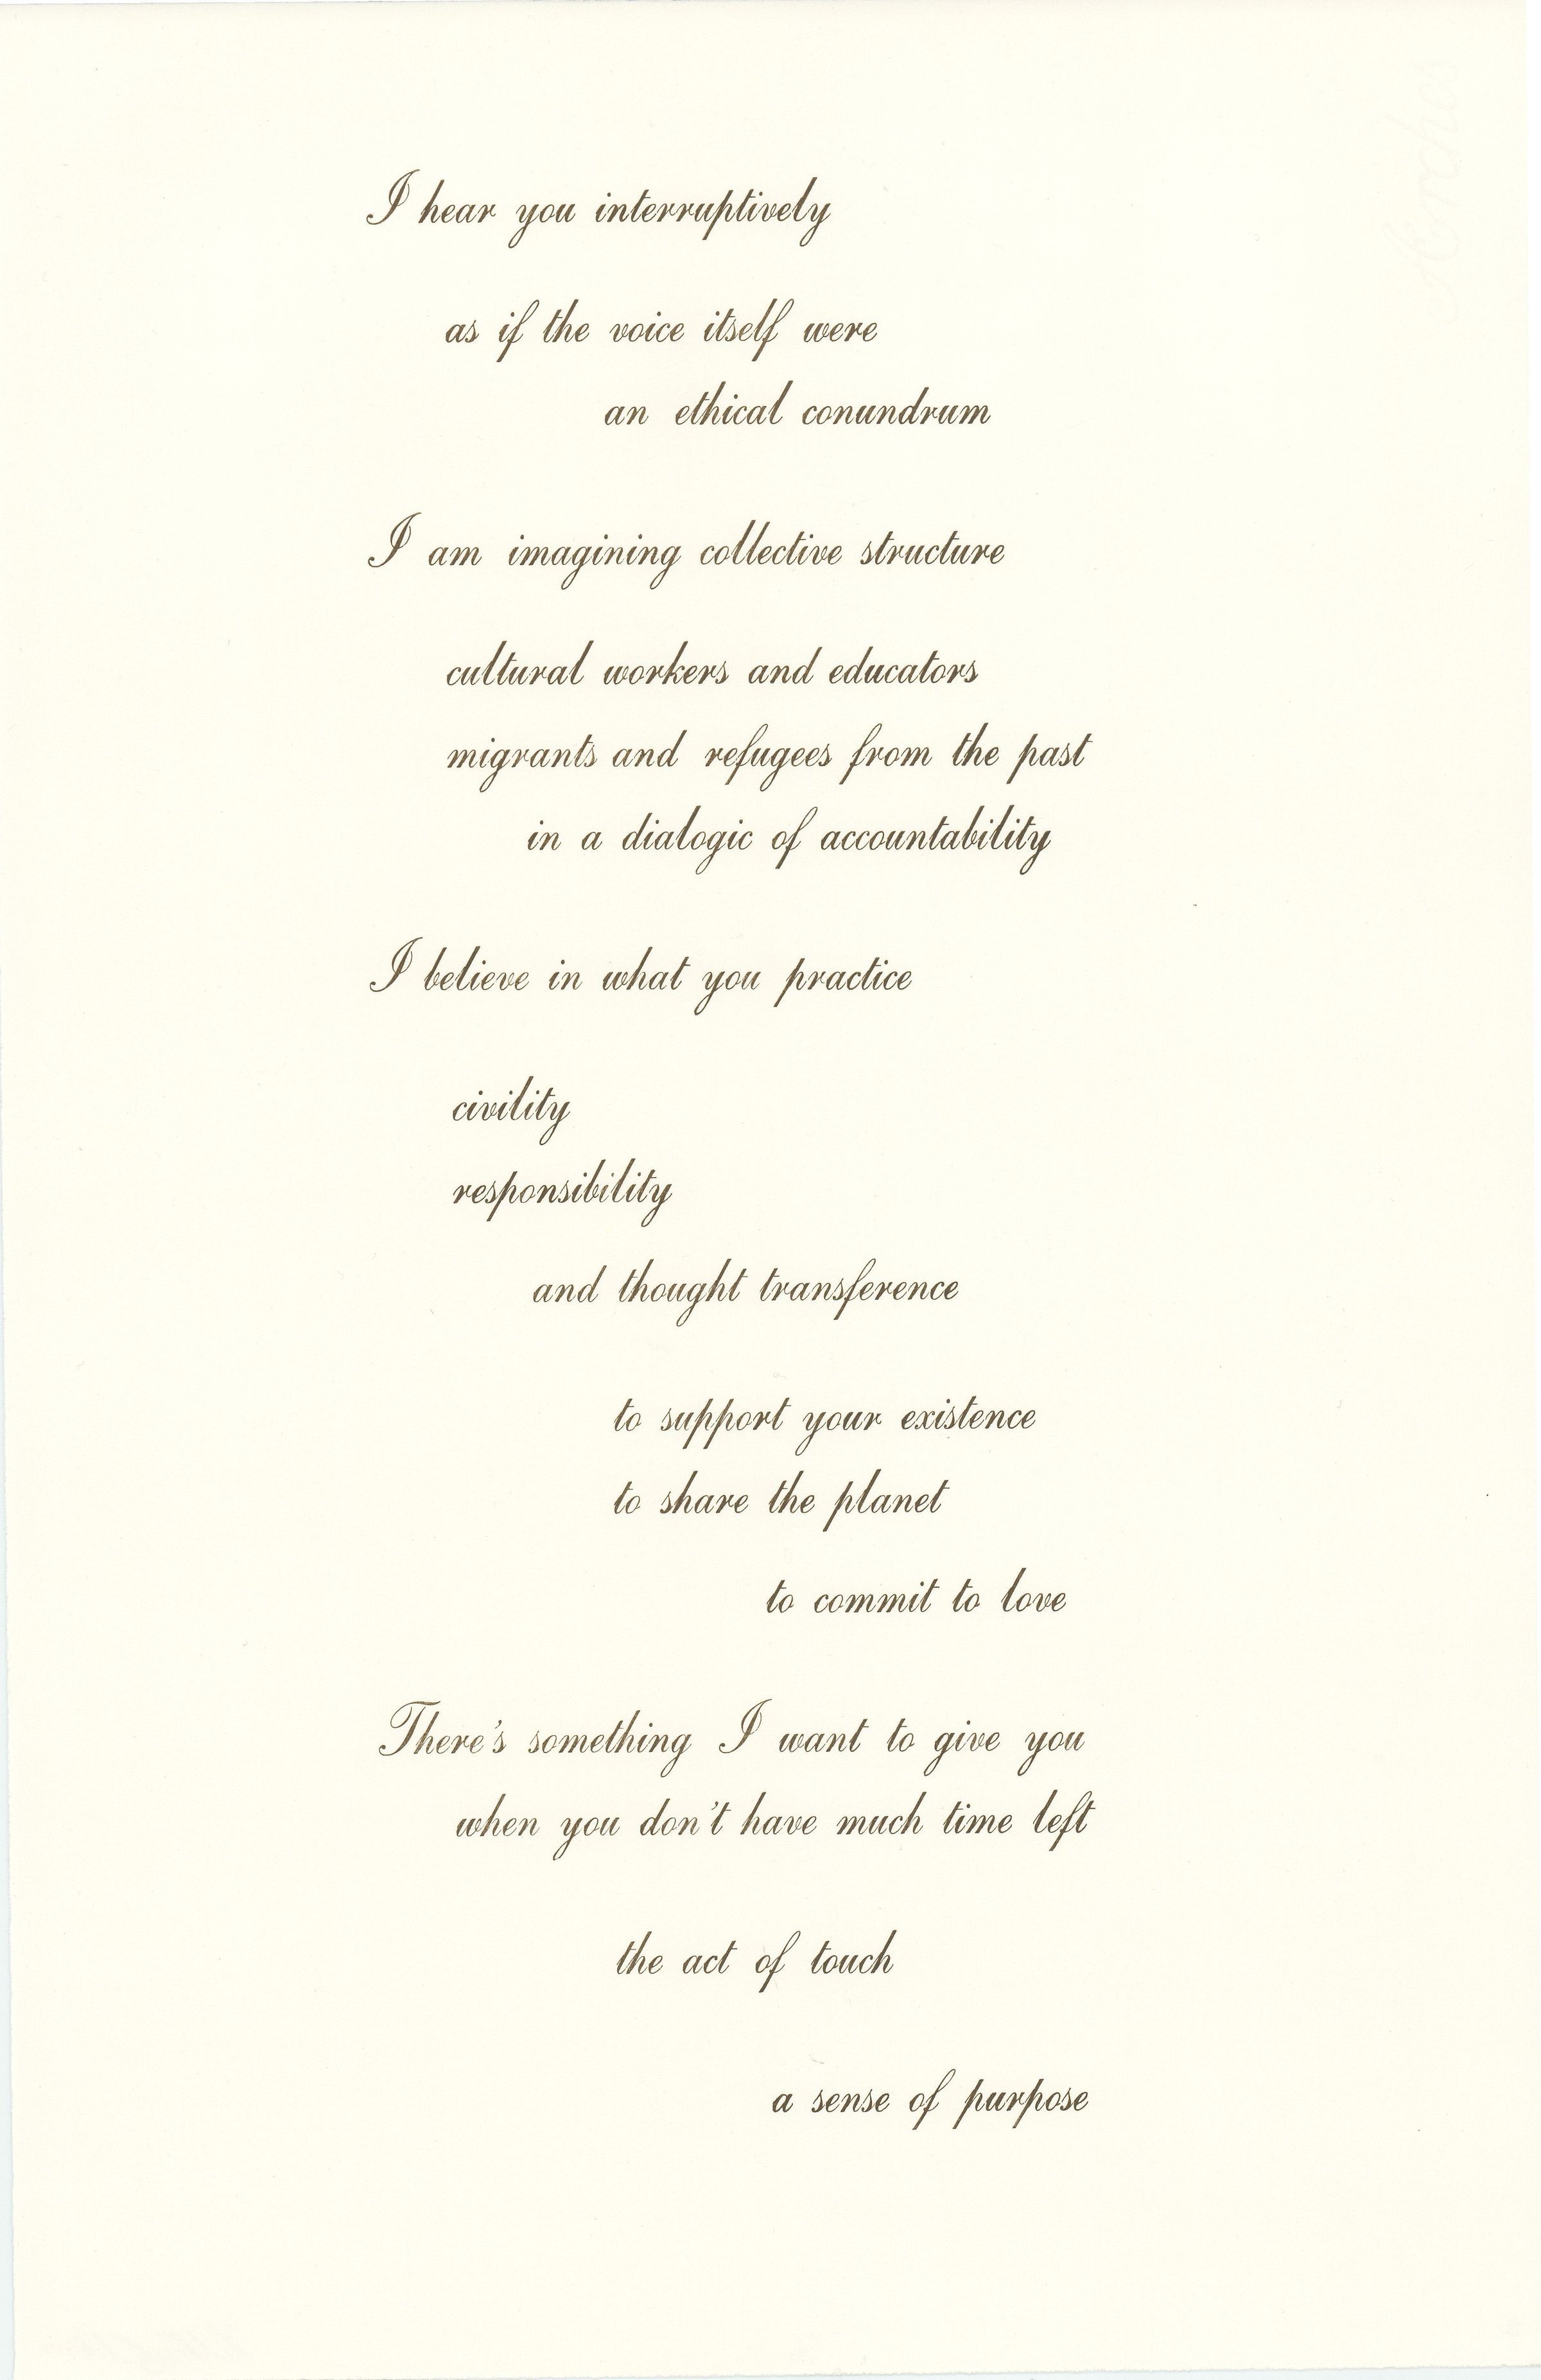 I hear you interruptively
as if the voice itself were
an ethical conundrum
I am imagining collective structure
cultural workers and educators
migrants and refugees from the past
in a dialogic of accountability
I believe in what you practice
civility
responsibility
and thought transference
to support your existence
to share the planet
to commit to love
There's something I want to give you
when you don't have much time left
the act of touch
a sense of purpose